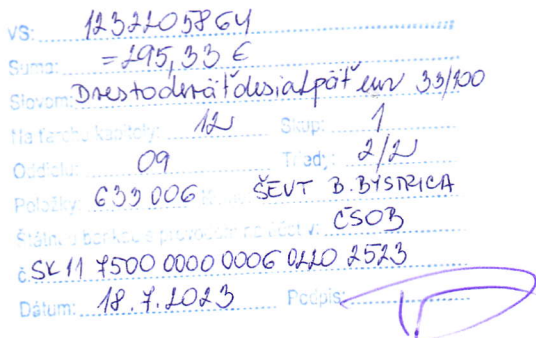 VS: 1232205864
Suma: =295,33 €
Slovom: Dvestodeväťdesiatpäť eur 33/100
Na ťarchu kapitoly: 12 Skup: 1
Oddielu: 09 Triedy: 2/2
Položky: 633 006 ŠEVT B. BYSTRICA
ČSOB
č. SK 11 7500 0000 0006 0220 2523
Dátum: 18.7.2023 Podpis: